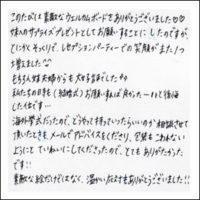 このたびは素敵なウェルカムボードをありがとうございました♡♡
妹へのサプライズプレゼントとしてお願いすることにしたのですが
とにかくそっくりで、レセプションパーティーでの笑顔がまた1つ
増えました
もちろん妹夫婦からも大好評でした
私たちの時も（結婚式）お願いすれば良かった…と後悔
した位です…
海外挙式だったので、どうやって持っていったらいいのか相談させて
頂いたときもメールでアドバイスをくださり、全然もこわれない
ようにとていねいにして下さったので、とてもありがたかった
です!!
素敵な絵だけではなく、温かい対応もありがとうございました!!